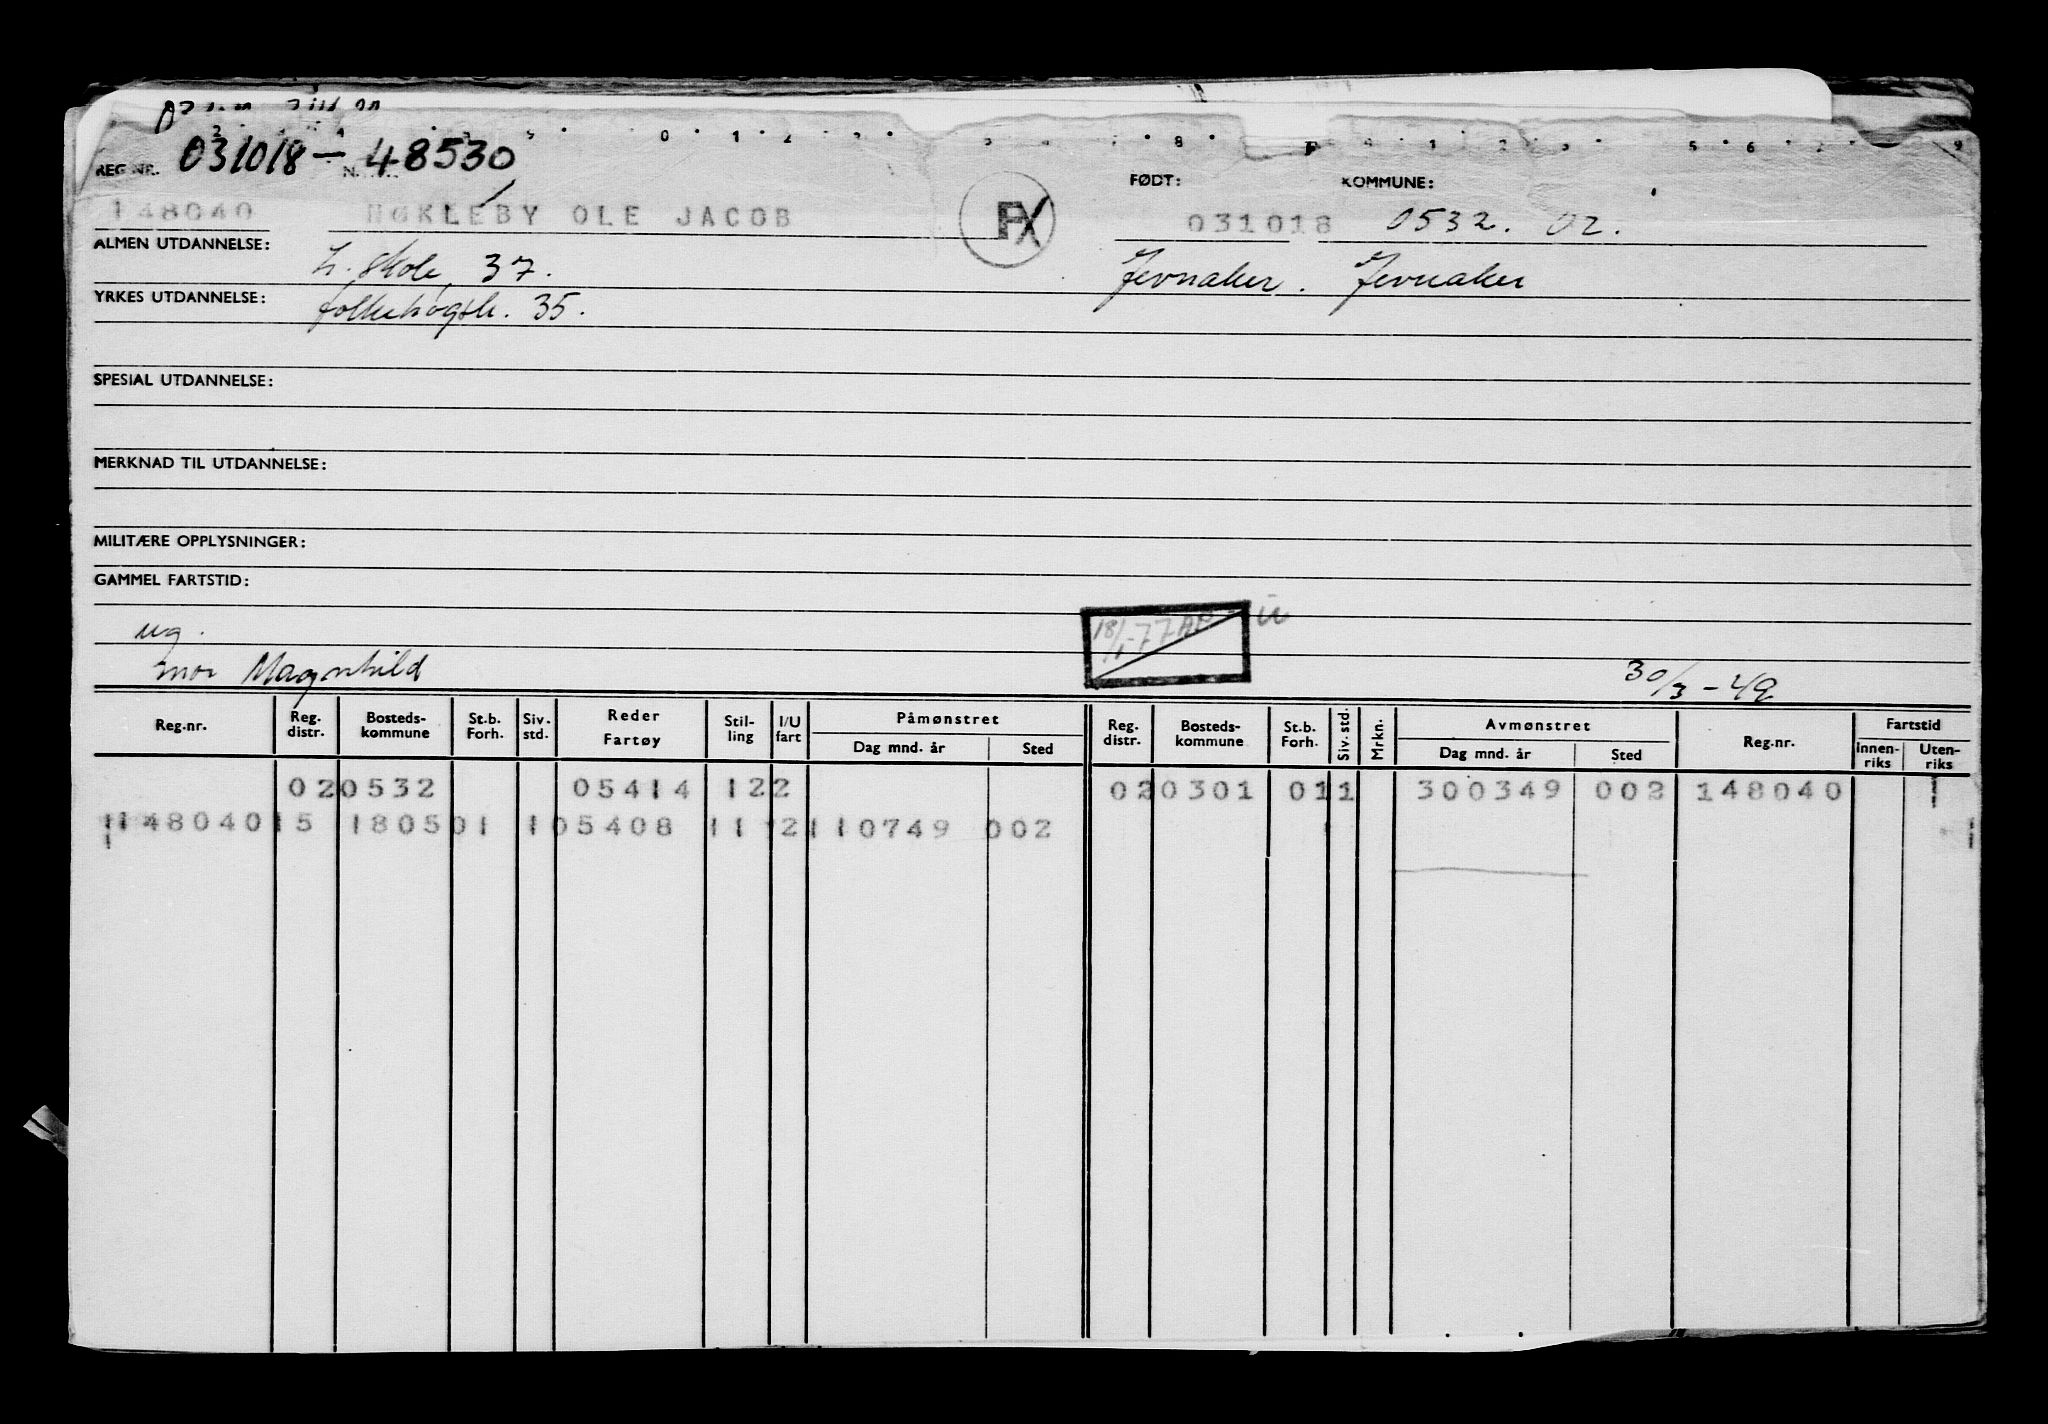 REG.NR. 031018-48530
FØDT: KOMMUNE:
148040 HØKLEBY OLE JACOB PX 031018 0532. 02.
ALMEN UTDANNELSE: h. skole 37. Jevnaker. Jevnaker
YRKES UTDANNELSE: folkehøgsk. 35.
SPESIAL UTDANNELSE:
MERKNAD TIL UTDANNELSE:
MILITÆRE OPPLYSNINGER:
GAMMEL FARTSTID:
ug. 18/1-77
mor Magnhild 30/3-49
Reg.nr. Reg. distr. Bosteds- kommune St.b. Forh. Siv. std. Reder Fartøy Stil- ling I/U fart Påmønstret Dag mnd. år Sted Reg. distr. Bosteds- kommune St.b. Forh. Siv. std. Mrkn. Avmønstret Dag mnd. år Sted Reg.nr. Fartstid Innen- riks Uten- riks
020532 05414 122 020301 011 300349 002 148040
148040 15 180501 105408 11 2110749 002